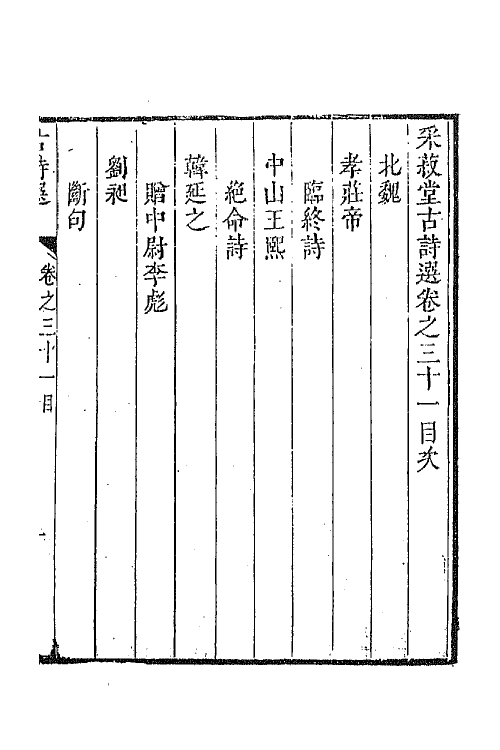 采菽堂古詩選卷之三十一目次
北魏
孝莊帝
臨終詩
中山王熙
絶命詩
韓延之
贈中尉李彪
劉昶
斷句
古詩選
卷之三十一目
一